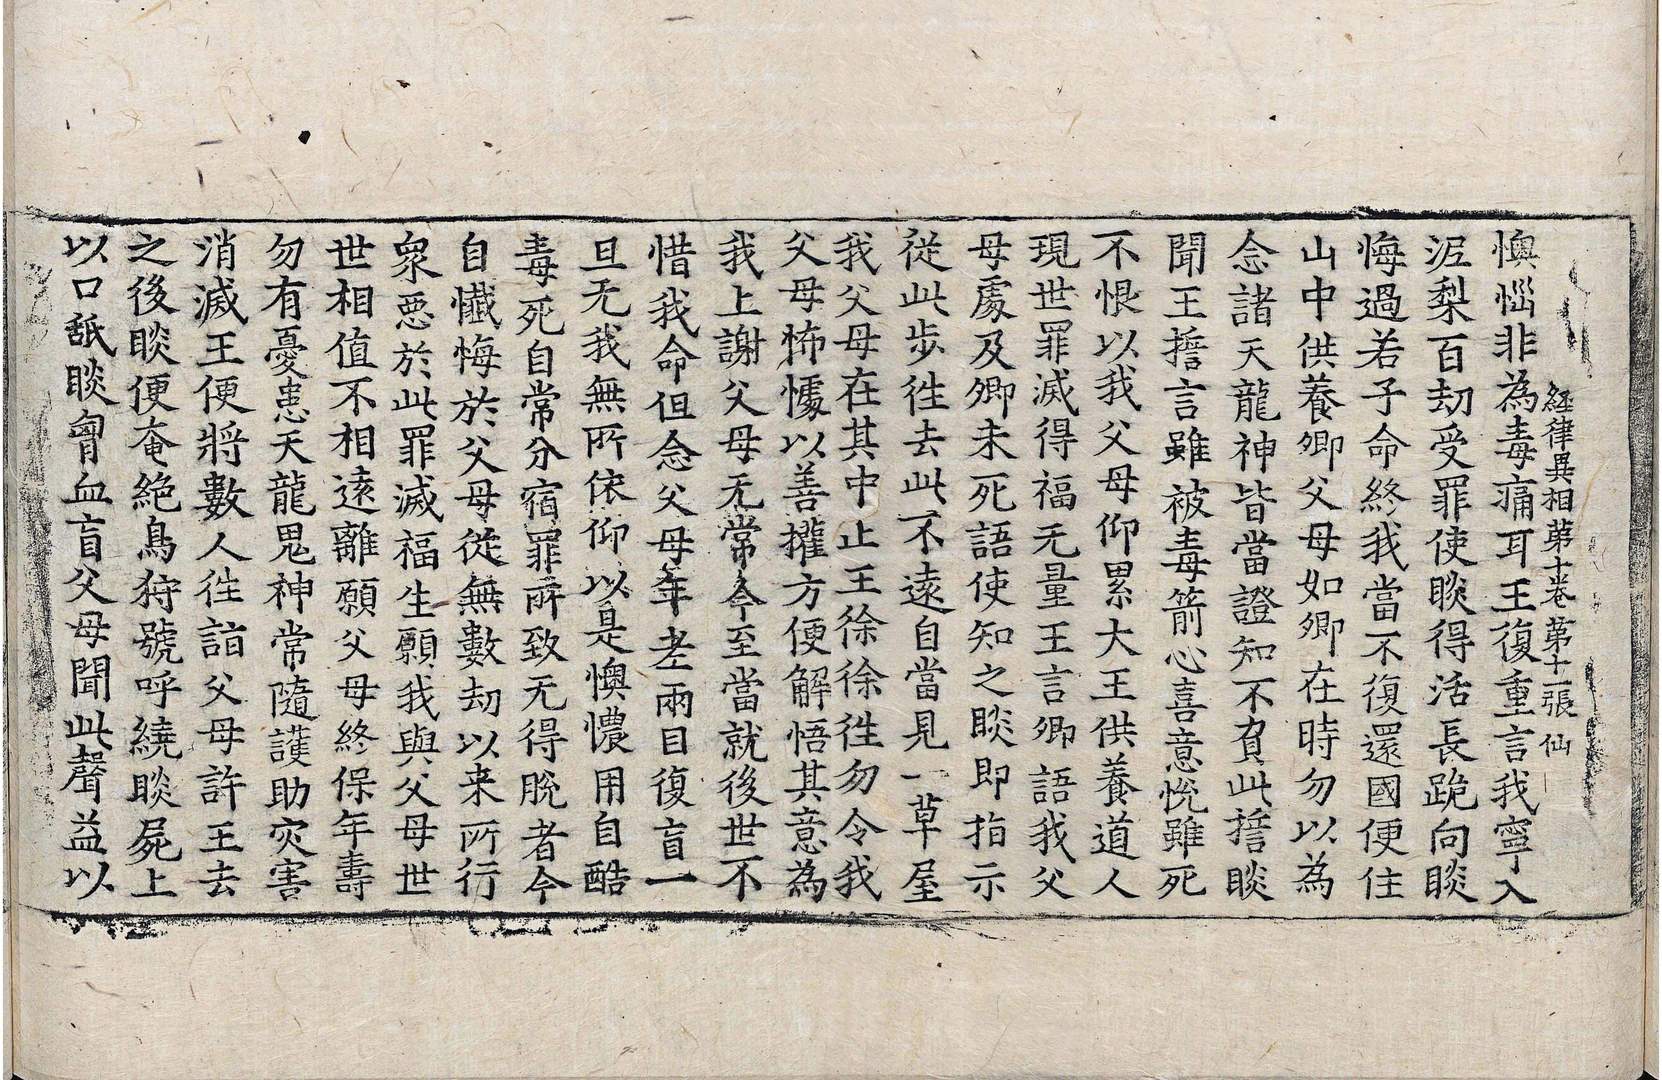 経律異相第十卷 第十一張 仙
懊惱非為毒痛耳王復重言我寧入
泥梨百劫受罪使睒得活長跪向睒
悔過若子命終我當不復還國便住
山中供養卿父母如卿在時勿以為
念諸天龍神皆當證知不負此誓睒
聞王誓言雖被毒箭心喜意悅雖死
不恨以我父母仰累大王供養道人
現世罪滅得福无量王言卿語我父
母處及卿未死語使知之睒即指示
從此步徃去此不遠自當見一草屋
我父母在其中止王徐徐徃勿令我
父母怖懅以善攉方便解悟其意為
我上謝父母无常今至當就後世不
惜我命但念父母年老兩目復盲一
旦无我無所依仰以是懊憹用自酷
毒死自常分宿罪所致无得脫者今
自懺悔於父母從無數劫以来所行
衆惡於此罪滅福生願我與父母世
世相值不相遠離願父母終保年壽
勿有憂患天龍鬼神常隨護助灾害
消滅王便將數人徃詣父母許王去
之後睒便奄絶鳥狩號呼繞睒屍上
以口舐睒胷血盲父母聞此聲益以